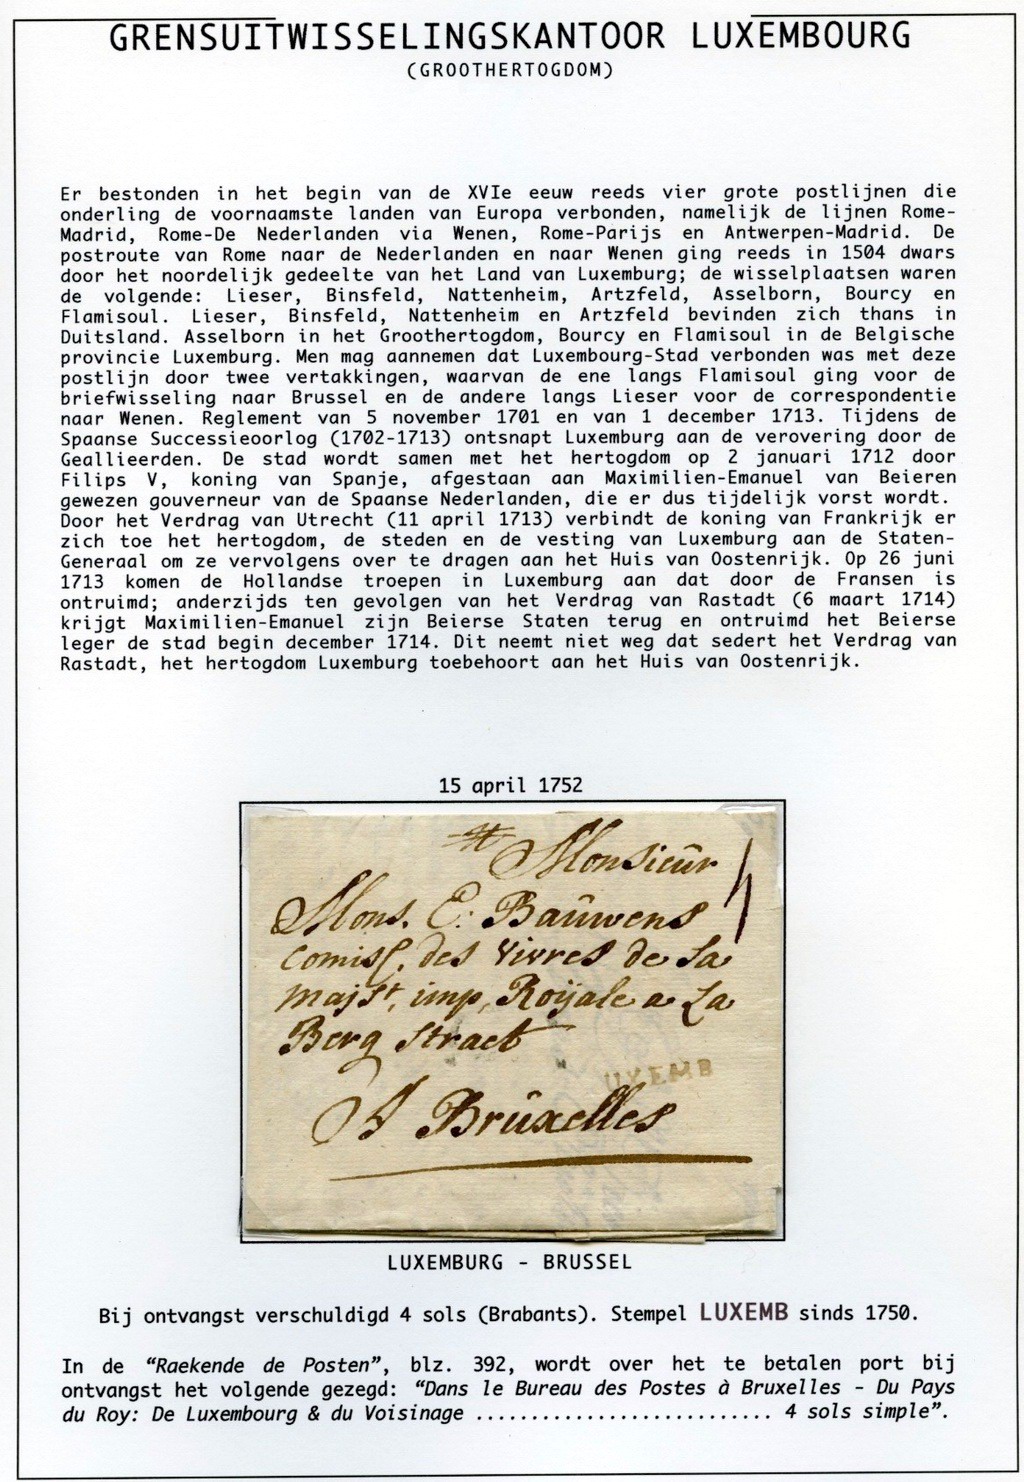 GRENSUITWISSELINGSKANTOOR LUXEMBOURG
(GROOTHERTOGDOM)
Er bestonden in het begin van de XVIe eeuw reeds vier grote postlijnen die
onderling de voornaamste landen van Europa verbonden, namelijk de lijnen Rome-
Madrid, Rome-De Nederlanden via Wenen, Rome-Parijs en Antwerpen-Madrid. De
postroute van Rome naar de Nederlanden en naar Wenen ging reeds in 1504 dwars
door het noordelijk gedeelte van het Land van Luxemburg; de wisselplaatsen waren
de volgende: Lieser, Binsfeld, Nattenheim, Artzfeld, Asselborn, Bourcy en
Flamisoul. Lieser, Binsfeld, Nattenheim en Artzfeld bevinden zich thans in
Duitsland. Asselborn in het Groothertogdom, Bourcy en Flamisoul in de Belgische
provincie Luxemburg. Men mag aannemen dat Luxembourg-Stad verbonden was met deze
postlijn door twee vertakkingen, waarvan de ene langs Flamisoul ging voor de
briefwisseling naar Brussel en de andere langs Lieser voor de correspondentie
naar Wenen. Reglement van 5 november 1701 en van 1 december 1713. Tijdens de
Spaanse Successieoorlog (1702-1713) ontsnapt Luxemburg aan de verovering door de
Geallieerden. De stad wordt samen met het hertogdom op 2 januari 1712 door
Filips V, koning van Spanje, afgestaan aan Maximilien-Emanuel van Beieren
gewezen gouverneur van de Spaanse Nederlanden, die er dus tijdelijk vorst wordt.
Door het Verdrag van Utrecht (11 april 1713) verbindt de koning van Frankrijk er
zich toe het hertogdom, de steden en de vesting van Luxemburg aan de Staten-
Generaal om ze vervolgens over te dragen aan het Huis van Oostenrijk. Op 26 juni
1713 komen de Hollandse troepen in Luxemburg aan dat door de Fransen is
ontruimd; anderzijds ten gevolgen van het Verdrag van Rastadt (6 maart 1714)
krijgt Maximilien-Emanuel zijn Beierse Staten terug en ontruimd het Beierse
leger de stad begin december 1714. Dit neemt niet weg dat sedert het Verdrag van
Rastadt, het hertogdom Luxemburg toebehoort aan het Huis van Oostenrijk.
15 april 1752
Monsieûr
Mons. E: Baûwens
comiss. des vivres de sa
majst. imp, Roijale a La
Berg straet
A Brûxelles
UXEMB
LUXEMBURG - BRUSSEL
Bij ontvangst verschuldigd 4 sols (Brabants). Stempel LUXEMB sinds 1750.
In de “Raekende de Posten”, blz. 392, wordt over het te betalen port bij
ontvangst het volgende gezegd: “Dans le Bureau des Postes à Bruxelles - Du Pays
du Roy: De Luxembourg & du Voisinage ........................... 4 sols simple”.